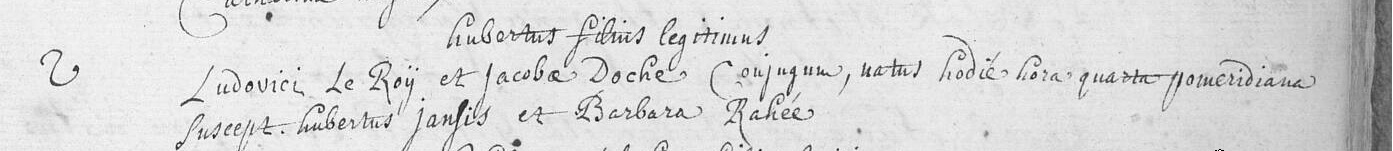 hubertus filius legitimus
2 Ludovici Le Roÿ et Jacobæ Doche Conjugum, natus hodié hora quarta pomeridiana
suscept. hubertus jansis et Barbara Rahée